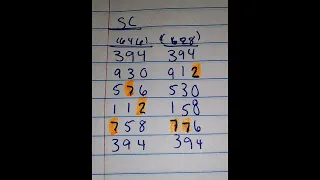 SC
(646) (628)
394 394
930 912
576 530
112 158
758 776
394 394